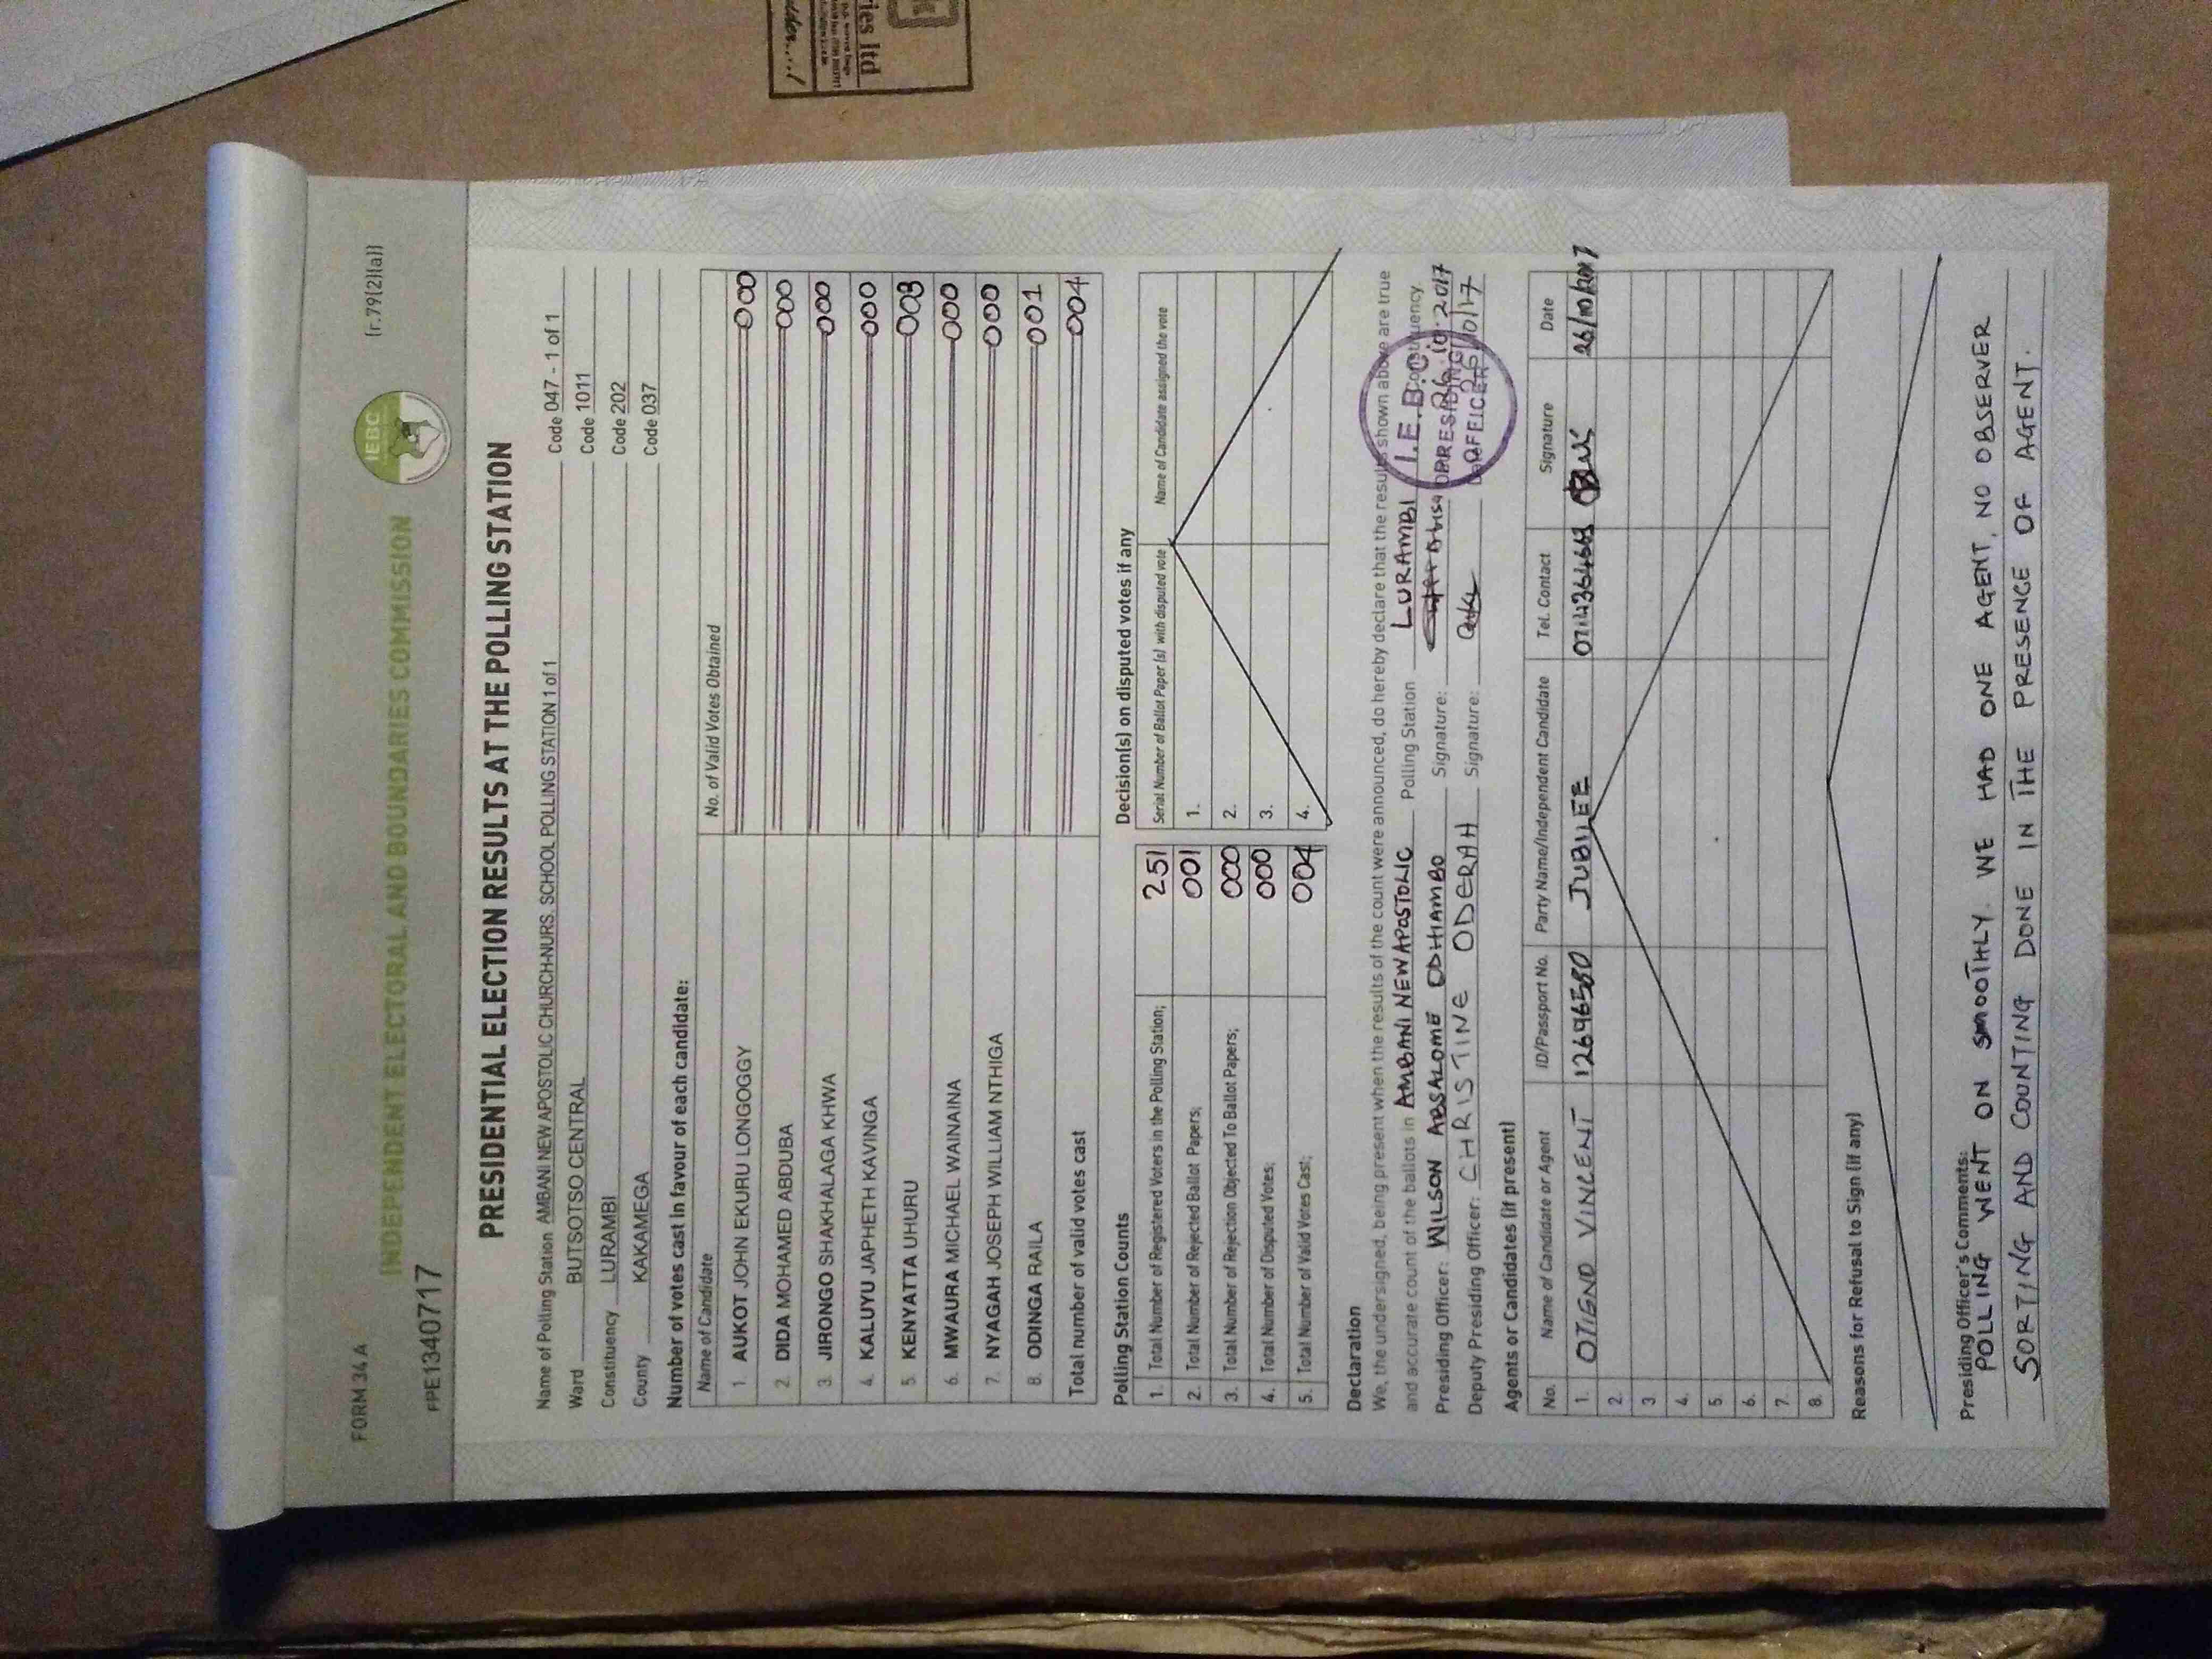 FORM 34 A
(r.79(2)(a))
INDEPENDENT ELECTORAL AND BOUNDARIES COMMISSION
IEBC
PPE1340717
PRESIDENTIAL ELECTION RESULTS AT THE POLLING STATION
Name of Polling Station AMBANI NEW APOSTOLIC CHURCH-NURS. SCHOOL POLLING STATION 1 of 1 Code 047 - 1 of 1
Ward BUTSOTSO CENTRAL Code 1011
Constituency LURAMBI Code 202
County KAKAMEGA Code 037
Number of votes cast in favour of each candidate:
Name of Candidate No. of Valid Votes Obtained
1. AUKOT JOHN EKURU LONGOGGY 000
2. DIDA MOHAMED ABDUBA 000
3. JIRONGO SHAKHALAGA KHWA 000
4. KALUYU JAPHETH KAVINGA 000
5. KENYATTA UHURU 003
6. MWAURA MICHAEL WAINAINA 000
7. NYAGAH JOSEPH WILLIAM NTHIGA 000
8. ODINGA RAILA 001
Total number of valid votes cast 004
Polling Station Counts
1. Total Number of Registered Voters in the Polling Station; 251
2. Total Number of Rejected Ballot Papers; 001
3. Total Number of Rejection Objected To Ballot Papers; 000
4. Total Number of Disputed Votes; 000
5. Total Number of Valid Votes Cast; 004
Decision(s) on disputed votes if any
Serial Number of Ballot Paper (s) with disputed vote Name of Candidate assigned the vote
1.
2.
3.
4.
Declaration
We, the undersigned, being present when the results of the count were announced, do hereby declare that the results shown above are true
and accurate count of the ballots in AMBANI NEW APOSTOLIC Polling Station LURAMBI Constituency.
Presiding Officer: WILSON ABSALOME ODHIAMBO Signature: 26.10.2017
Deputy Presiding Officer: CHRISTINE ODERAH Signature:
I.E.B.C
PRESIDING
OFFICER
Agents or Candidates (if present)
No. Name of Candidate or Agent ID/Passport No. Party Name/Independent Candidate Tel. Contact Signature Date
1. OTIGNO VINCENT 12696580 JUBILEE 26/10/2017
2.
3.
4.
5.
6.
7.
8.
Reasons for Refusal to Sign (if any)
Presiding Officer's Comments:
POLLING WENT ON SMOOTHLY. WE HAD ONE AGENT, NO OBSERVER
SORTING AND COUNTING DONE IN THE PRESENCE OF AGENT.
ies ltd